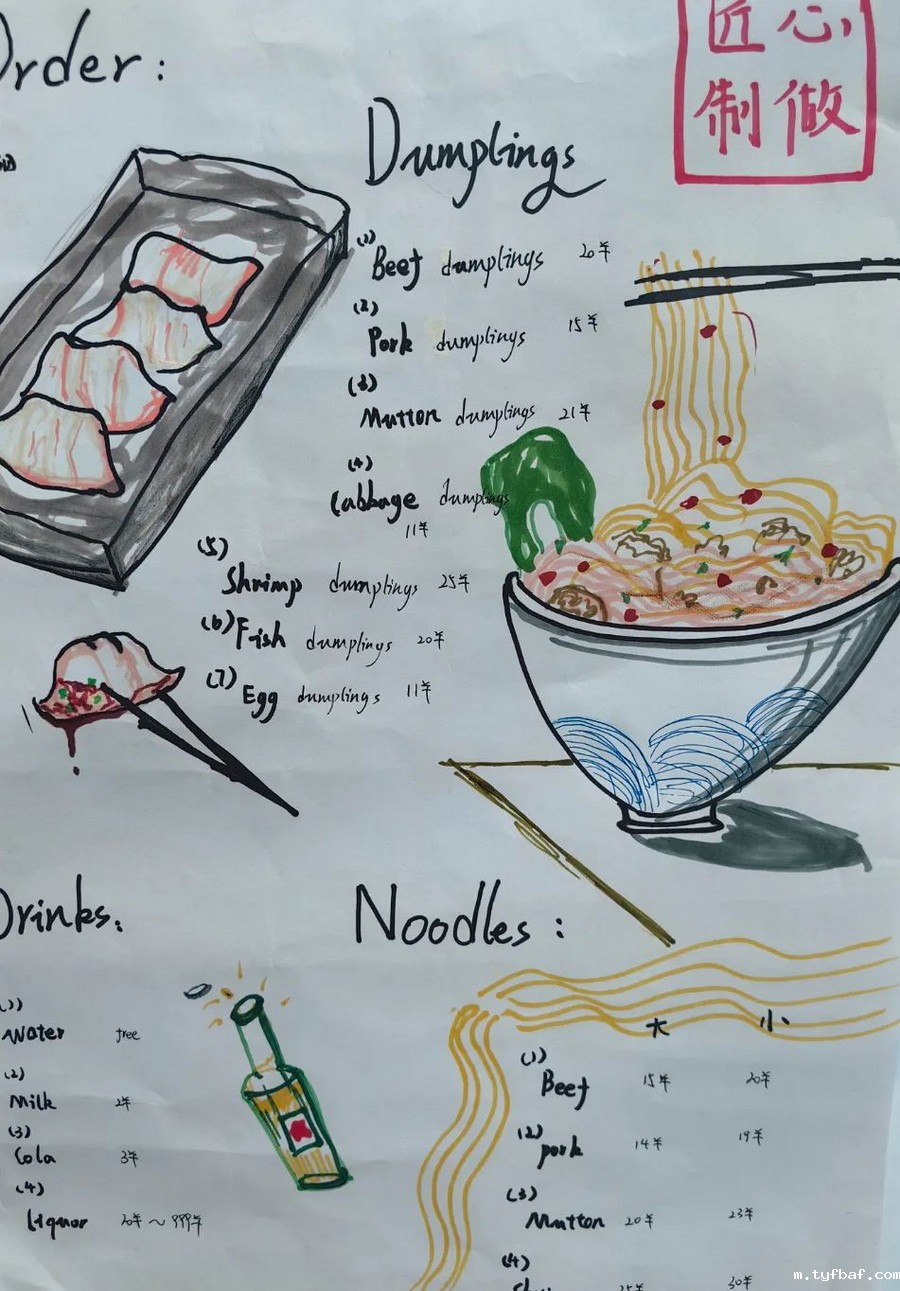 Order:
匠心
制做
Dumplings
(1)
Beef dumplings 20羊
(2)
Pork dumplings 15羊
(3)
Mutton dumplings 21羊
(4)
Cabbage dumplings
11羊
(5)
Shrimp dumplings 25羊
(6) Fish dumplings 20羊
(7) Egg dumplings 11羊
Drinks:
(1)
Water free
(2)
Milk 2羊
(3)
Cola 3羊
(4)
Liquor 20羊~999羊
Noodles:
大 小
(1)
Beef 15羊 20羊
(2) pork 14羊 19羊
(3)
Mutton 20羊 23羊
(4)
25羊 30羊
m.tyfbaf.com